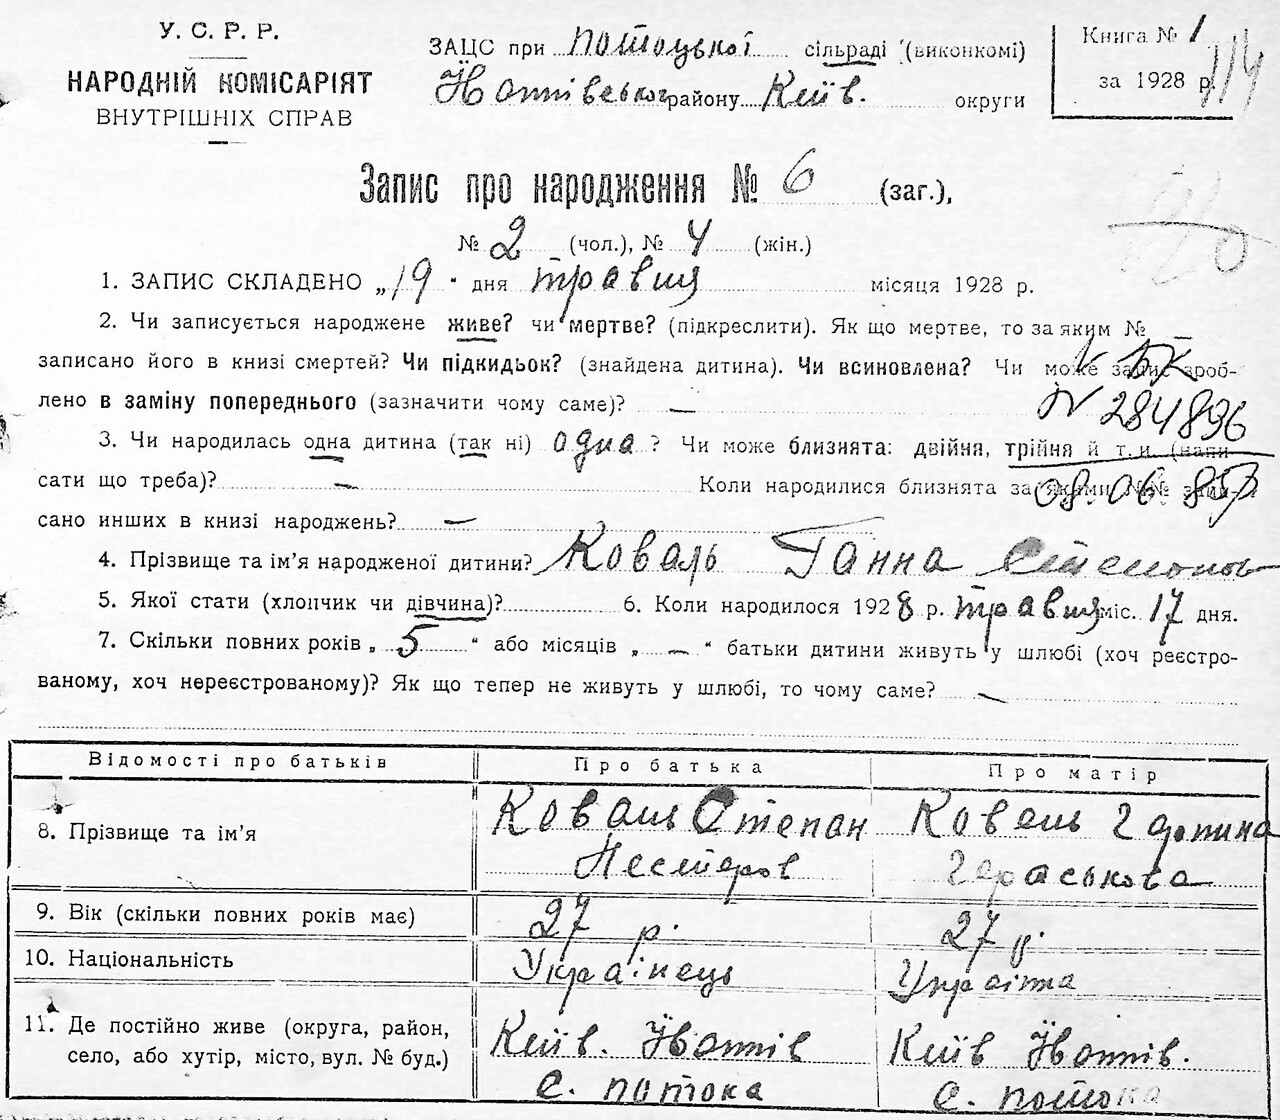 У. С. Р. Р.
НАРОДНІЙ КОМІСАРІЯТ
ВНУТРІШНІХ СПРАВ
ЗАЦС при Потоцької сільраді (виконкомі)
району Київ. округи
Книга № 1
за 1928 р.
114
Запис про народження № 6 (заг.),
№ 2 (чол.), № 4 (жін.)
1. ЗАПИС СКЛАДЕНО „19" дня травня місяця 1928 р.
2. Чи записується народжене живе? чи мертве? (підкреслити). Як що мертве, то за яким № —
записано його в книзі смертей? Чи підкидьок? (знайдена дитина). Чи всиновлена? Чи може запис зроб-
лено в заміну попереднього (зазначити чому саме)? —
№ 284896
3. Чи народилась одна дитина (так ні) одна? Чи може близнята: двійня, трійня й т. и. (напи-
сати що треба)? — Коли народилися близнята за якими №№ запи-
08.06.85
сано инших в книзі народжень? —
4. Прізвище та ім'я народженої дитини? Коваль Ганна Степанов
5. Якої стати (хлопчик чи дівчина)? 6. Коли народилося 1928 р. травня міс. 17 дня.
7. Скільки повних років „5" або місяців „—" батьки дитини живуть у шлюбі (хоч реєстро-
ваному, хоч нереєстрованому)? Як що тепер не живуть у шлюбі, то чому саме? —
Відомості про батьків Про батька Про матір
8. Прізвище та ім'я Коваль Степан Нестеров Коваль Горпина Гераськова
9. Вік (скільки повних років має) 27 р. 27 р.
10. Національність Українець Українка
11. Де постійно живе (округа, район, Київ. Київ
село, або хутір, місто, вул. № буд.) с. Потока с. Потока